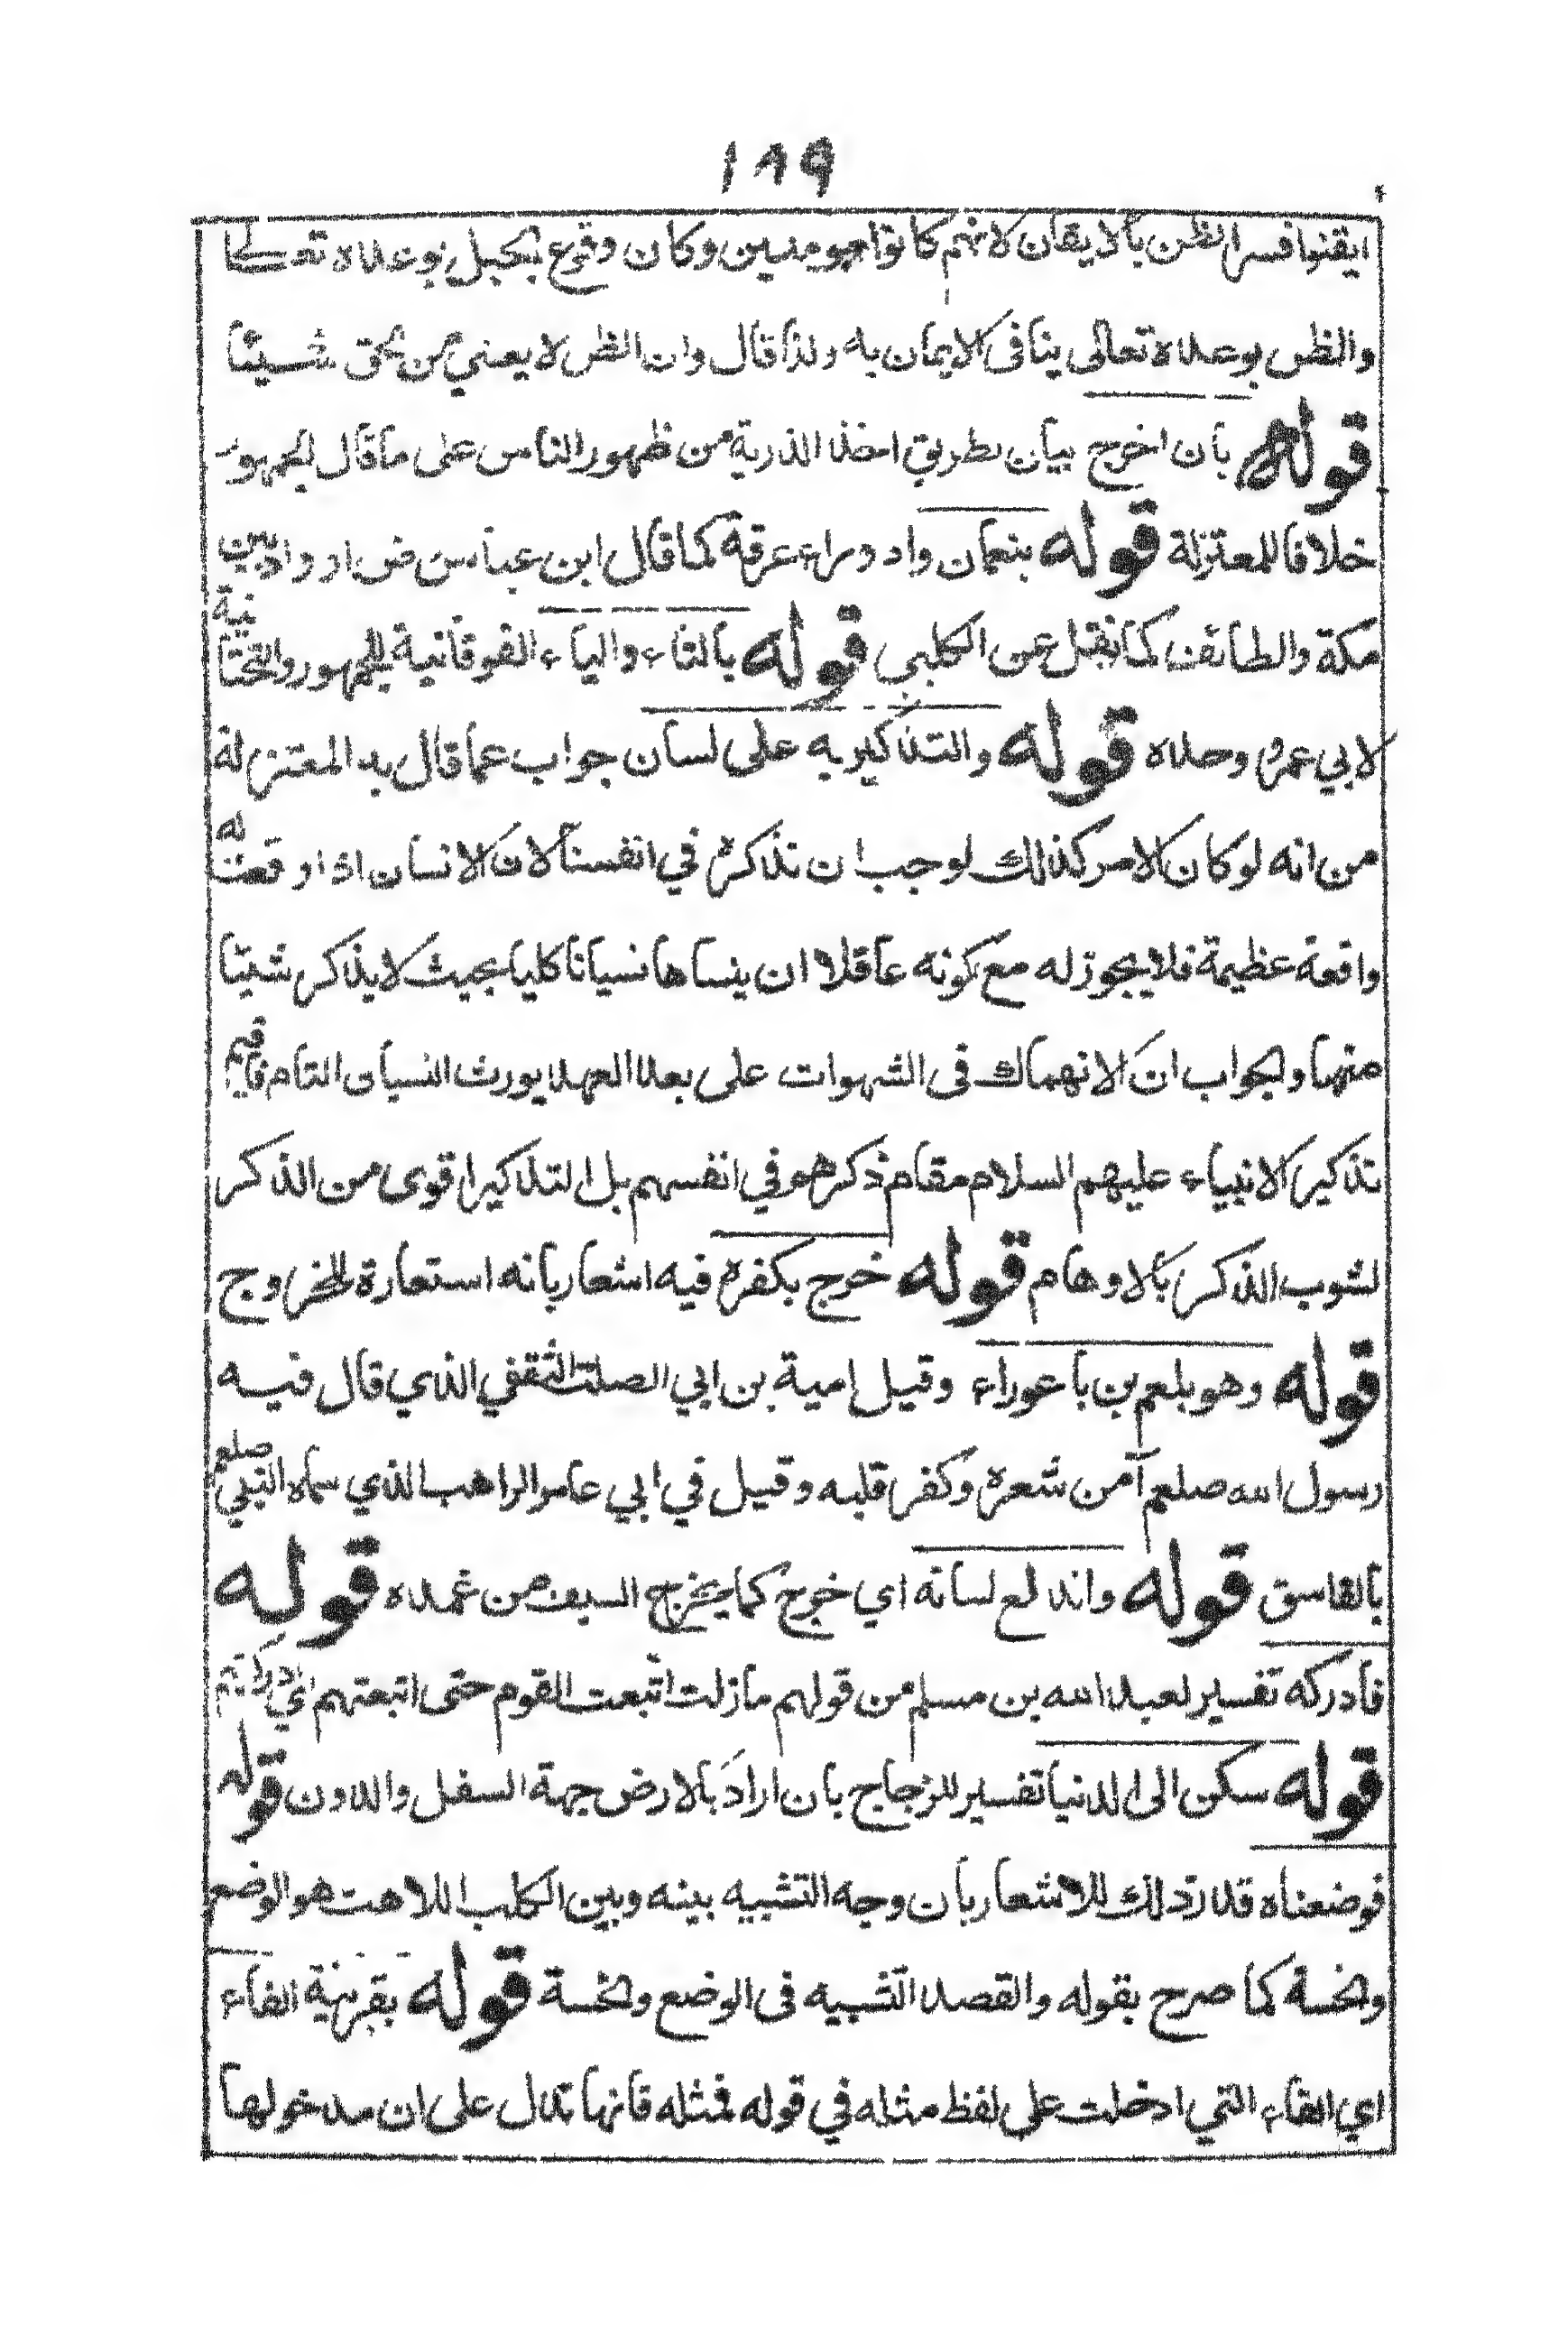 ١٨٩
ايقنوا فسر الظن بالايقان لانهم كانوا مومنين وكان وقوع الجبل بوعده تعالى
والظن بوعده تعالى ينافى الايمان به ولذا قال وان الظن لا يغني من الحق شيئا
قوله بان اخرج بيان لطريق اخذ الذرية من ظهور الناس على ما قال الجمهور
خلافا للمعتزلة قوله بنعمان واد وراء عرفة كما قال ابن عباس رض او واد بين
مكة والطائف كما نقل عن الكلبي قوله بالتاء والياء الفوقانية للجمهور والتحتانية
لابي عمرو وحده قوله والتذكير به على لسان جواب عما قال به المعتزلة
من انه لو كان الامر كذلك لوجب ان نذكره في انفسنا لان الانسان اذا وقعت له
واقعة عظيمة فلا يجوز له مع كونه عاقلا ان ينساها نسيانا كليا بحيث لا يذكر شيئا
منها والجواب ان الانهماك فى الشهوات على بعد العهد يورث النسيان التام فاقيم
تذكير الانبياء عليهم السلام مقام ذكرهم في انفسهم بل التذكير اقوى من الذكر
لشوب الذكر بالاوهام قوله خرج بكفره فيه اشعار بانه استعارة للخروج
قوله وهو بلعم بن باعوراء وقيل امية بن ابي الصلت الثقفي الذي قال فيه
رسول الله صلعم آمن شعره وكفر قلبه وقيل في ابي عامر الراهب الذي سماه النبي صلعم
بالفاسق قوله واندلع لسانه اي خرج كما يخرج السيف من غمده قوله
فادركه تفسير لعبد الله بن مسلم من قولهم ما زلت اتبعت القوم حتى اتبعتهم اي ادركتهم
قوله سكن الى الدنيا تفسير للزجاج بان اراد بالارض جهة السفل والدون قوله
فوضعناه قدر ذلك للاشعار بان وجه التشبيه بينه وبين الكلب اللاهث هو الوضع
والخسة كما صرح بقوله والقصد التشبيه فى الوضع والخسة قوله بقرينة الفاء
اي الفاء التي ادخلت على لفظ مثله في قوله فمثله فانها تدل على ان مدخولها